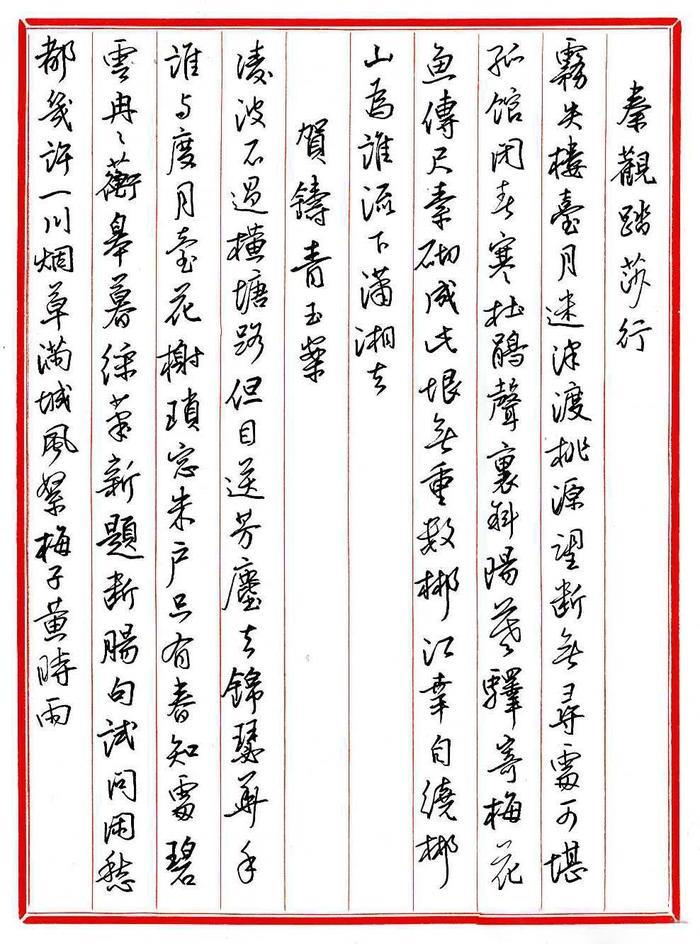 秦觀踏莎行
霧失樓臺月迷津渡桃源望斷無尋處可堪
孤館閉春寒杜鵑聲裏斜陽暮驛寄梅花
魚傳尺素砌成此恨無重數郴江幸自繞郴
山為誰流下瀟湘去
賀鑄青玉案
凌波不過橫塘路但目送芳塵去錦瑟華年
誰与度月臺花榭瑣窗朱户只有春知處碧
雲冉〻蘅皋暮綵筆新題斷腸句試问闲愁
都幾許一川烟草滿城風絮梅子黄時雨